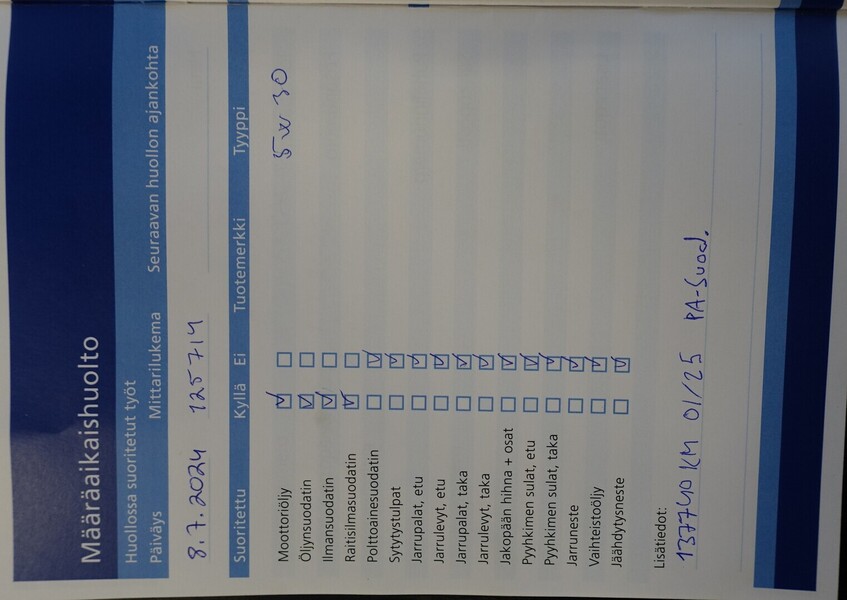 Määräaikaishuolto
Huollossa suoritetut työt
Päiväys Mittarilukema Seuraavan huollon ajankohta
8.7.2024 125714
Suoritettu Kyllä Ei Tuotemerkki Tyyppi
Moottoriöljy 5w30
Öljynsuodatin
Ilmansuodatin
Raitisilmasuodatin
Polttoainesuodatin
Sytytystulpat
Jarrupalat, etu
Jarrulevyt, etu
Jarrupalat, taka
Jarrulevyt, taka
Jakopään hihna + osat
Pyyhkimen sulat, etu
Pyyhkimen sulat, taka
Jarruneste
Vaihteistoöljy
Jäähdytysneste
Lisätiedot:
137740 KM 01/25 PA-Suod.